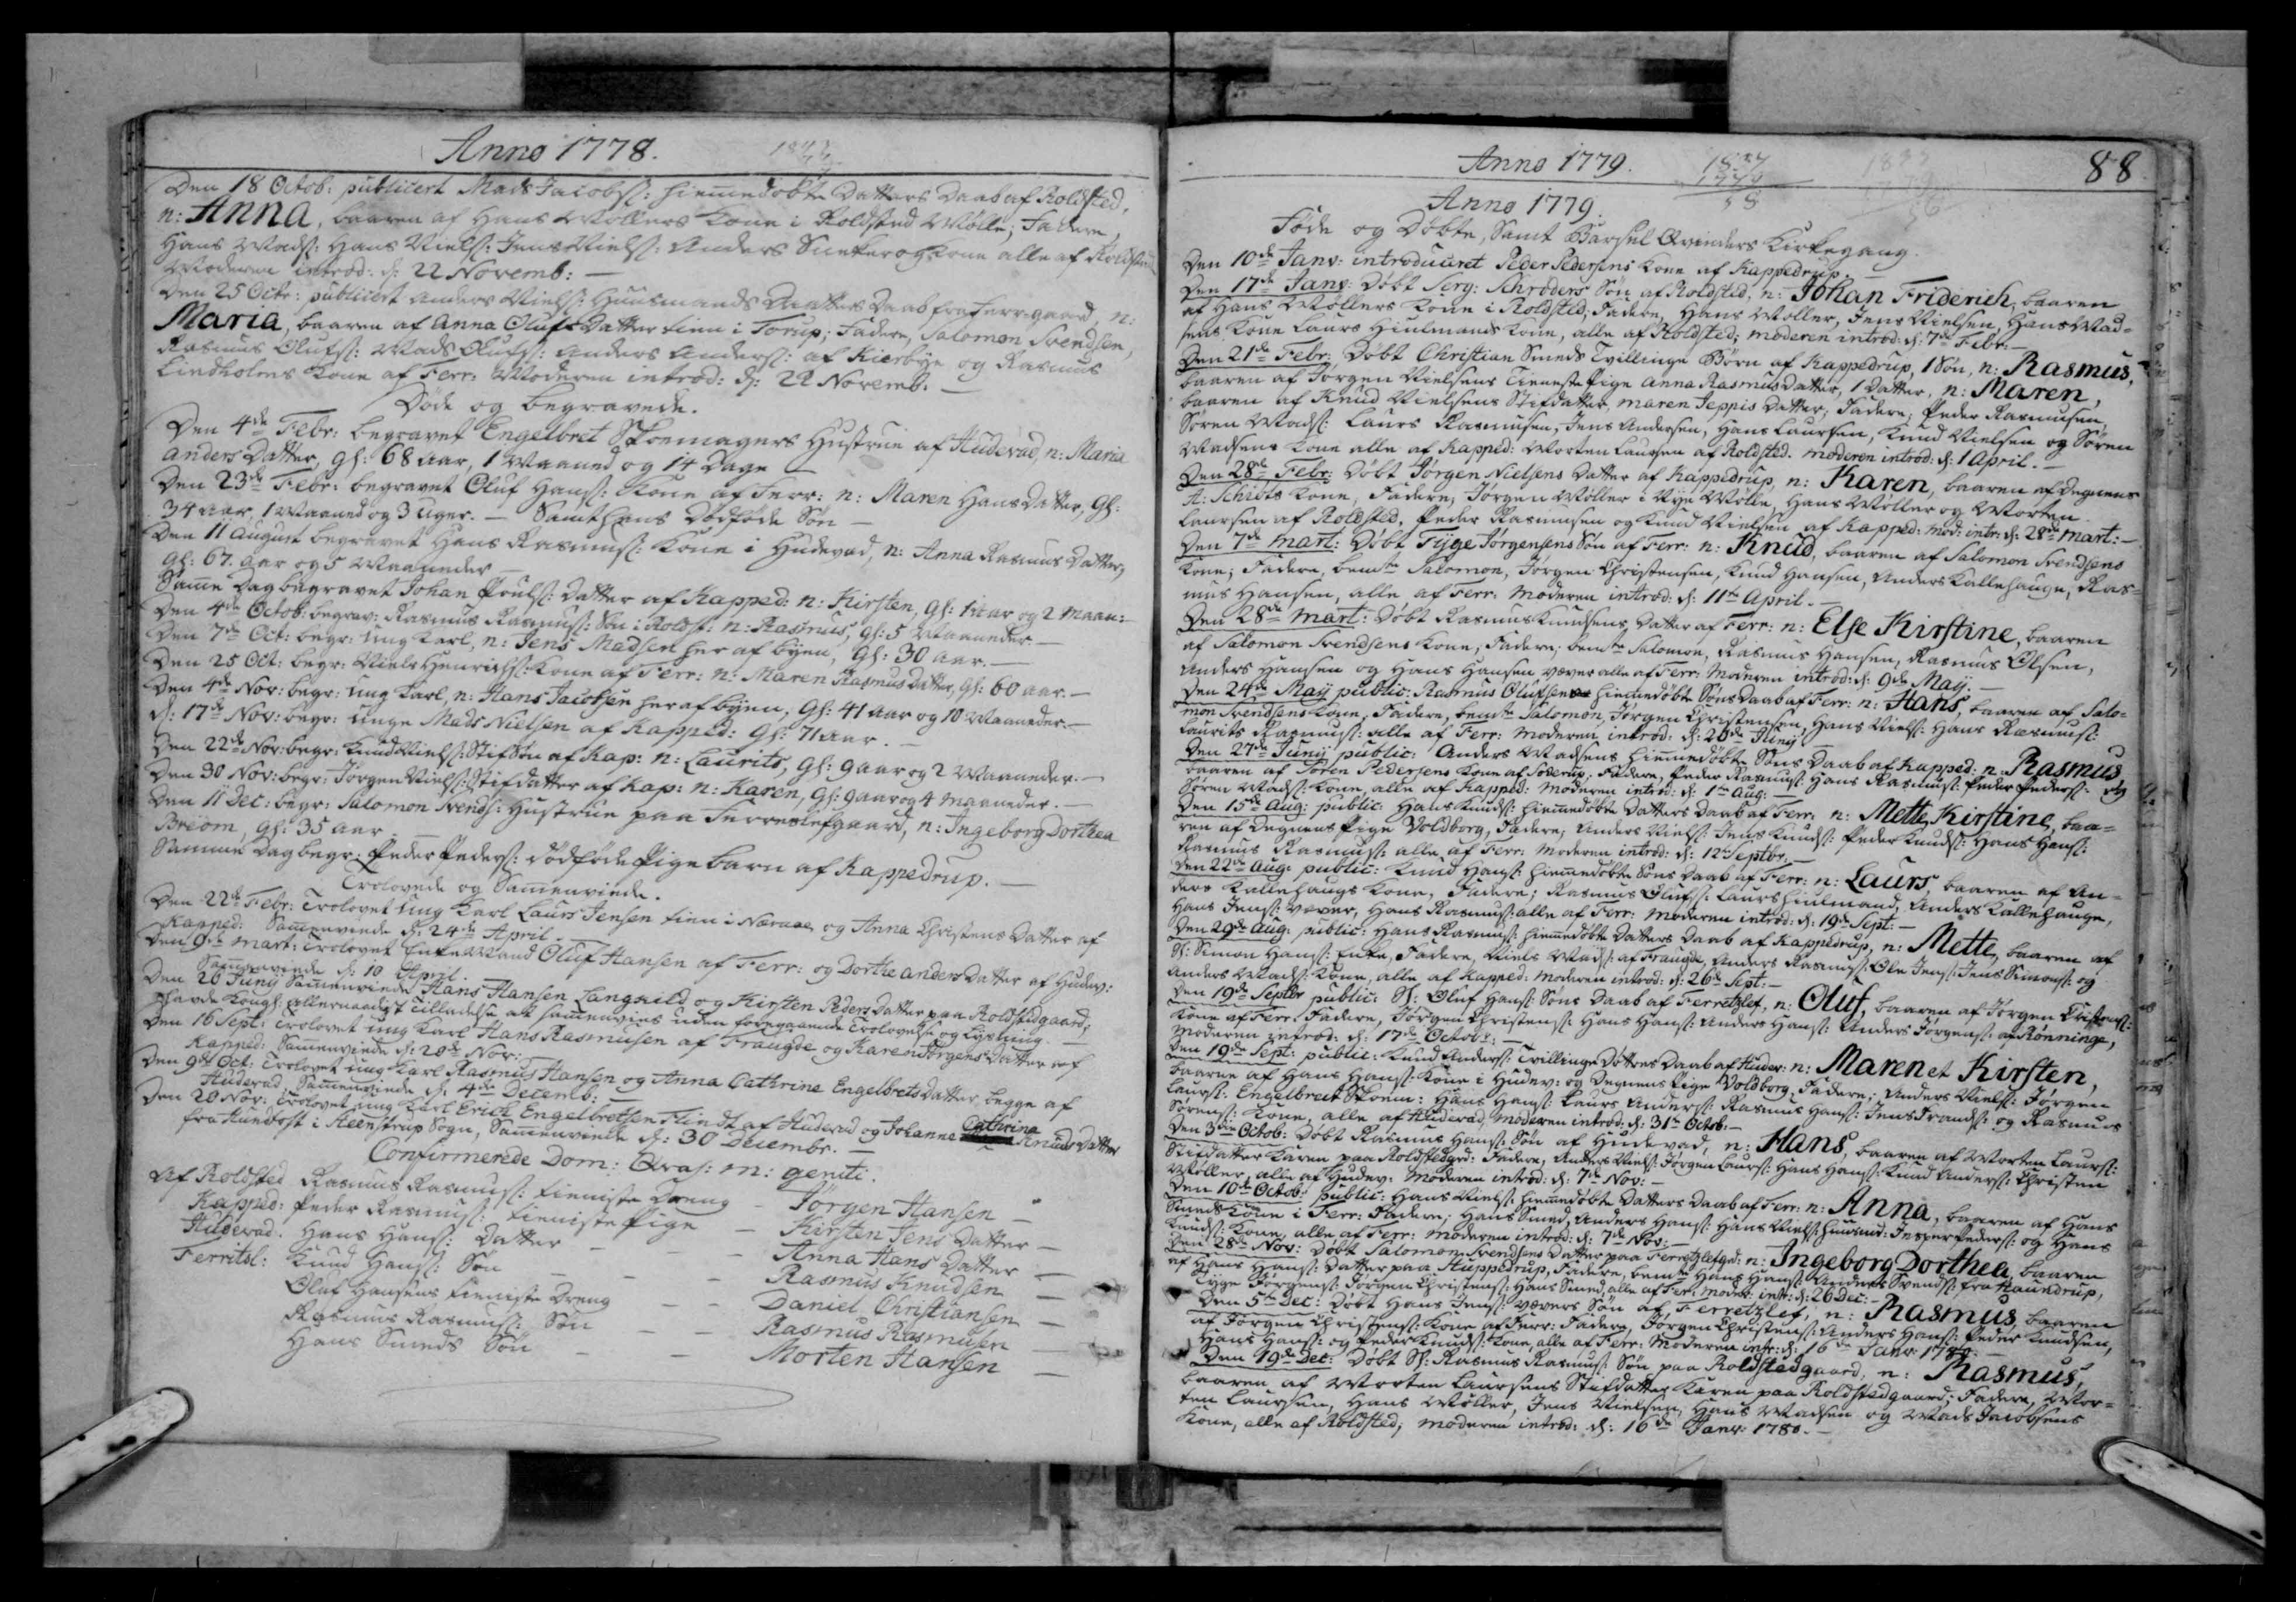 Anno 1778.
Den 18 Octob: publicert Mads Jacobs: hiemmedøbte Datters Daab af Roldsted,
n: Anna, baaren af Hans Møllers Kone i Roldsted Mølle; Fadere,
Hans Mads: Hans Niels: Jens Niels: Anders og Kone alle af Roldsted
Moderen introd: d: 22 Novemb: —
Den 25 Octr: publicert Anders Niels: Huusmands Datters Daab fra Ferr: gaard, n:
Maria, baaren af Anna Olufs Datter tien i Torup; Fadere, Salomon Svendsen,
Rasmus Olufs: Mads Olufs: Anders Anders: af Kierbye og Rasmus
Lindholms Kone af Ferr: Moderen introd: d: 22 Novemb. —
Døde og begravede.
Den 4de Febr: begravet Engelbret Skoemagers Hustrue af Hudevad, n: Maria
Anders Datter, gl: 68 aar, 1 Maaned og 14 Dage —
Den 23de Febr: begravet Oluf Hans: Kone af Ferr: n: Maren Hans Datter, Gl:
34 aar, 1 Maaned og 3 Uger. — Samt hans dødføde Søn —
Den 11 August begravet Hans Rasmus: Kone i Hudevad, n: Anna Rasmus Datter,
gl: 67. aar og 5 Maaneder —
Samme Dag begravet Johan Pouls: Datter af Kapped: n: Kirsten, gl: 1 aar og 2 Maan: —
Den 4de Octob: begrav: Rasmus Rasmus: Søn i Roldst: n: Rasmus, gl: 5 Maaneder —
Den 7de Oct: begr: ung Karl, n: Jens Madsen her af byen, gl: 30 aar. —
Den 25 Oct: begr: Niels Henrichs: Kone af Ferr: n: Maren Rasmus Datter, gl: 60 aar. —
Den 4de Nov: begr: ung Karl, n: Hans Jacobsen her af byen, gl: 41 aar og 10 Maaneder. —
d: 17de Nov: begr: unge Mads Nielsen af Kapped: gl: 71 aar. —
Den 22de Nov: begr: Knud Niels: Stif Søn af Kap: n: Laurits, gl: 9 aar og 2 Maaneder. —
Den 30 Nov: begr: Jørgen Niels: Stifdatter af Kap: n: Karen, gl: 9 aar og 4 Maaneder. —
Den 11 Dec: begr: Salomon Svends: Hustrue paa Ferreslefgaard, n: Ingeborg Dorthea
Breom, gl: 35 aar. —
Samme Dag begr: Peder Peders: dødføde Pige barn af Kappedrup. —
Trolovede og Sammenviede.
Den 22de Febr: Trolovet ung Karl Laurs Jensen tien i Næraae og Anna Christens Datter af
Kapped: Sammenviede d: 24de April. —
Den 9de Mart: Trolovet Enkemand Oluf Hansen af Ferr: og Dorthe Anders Datter af Hudev:
Sammenviede d: 10 April.
Den 26 Juny Sammenviede Hans Hansen Langkild og Kirsten Peders Datter paa Roldstedgaard,
havde Kongl: allernaadigst Tilladelse at sammenvies uden foregaaende Trolovelse og Lysning. —
Den 16 Sept: Trolovet ung Karl Hans Rasmusen af Fraugde og Karen Jørgens Datter af
Kapped: Sammenviede d: 20de Nov: —
Den 9de Oct: Trolovet ung Karl Rasmus Hansen og Anna Cathrine Engelbrets Datter, begge af
Huderad, Sammenviede d: 4de Decemb: —
Den 20 Nov: Trolovet ung Karl Erich Engelbretsen Flindt af Huderad og Johanne Cathrina Knuds Datter
fra i Sogn, Sammenviede d: 30 Decembr. —
Confirmerede Dom: Qvas: m: geniti.
Af Roldsted Rasmus Rasmus: tieniste Dreng — Jørgen Hansen —
Kapped: Peder Rasmus: tieniste Pige — Kirsten Jens Datter —
Huderad. Hans Hans: Datter — Anna Hans Datter —
Ferritsl: Knud Hans: Søn — Rasmus Knudsen —
Oluf Hansens tieniste Dreng — Daniel Christiansen —
Rasmus Rasmus: Søn — Rasmus Rasmusen —
Hans Smeds Søn — Morten Hansen —
Anno 1779. 88
Anno 1779.
Føde og Døbte, Samt Barsel Qvinders Kirkegang.
Den 10de Janv: introduceret Peder Pedersens Kone af Kappedrup. —
Den 17de Janv: Døbt Serg: Schrøders Søn af Roldsted, n: Johan Friderich, baaren
af Hans Møllers Kone i Roldsted, Fadere, Hans Møller, Jens Nielsen, Hans Mad-
sens Kone Laurs Hiulmands Kone, alle af Roldsted; Moderen introd: d: 7de Febr: —
Den 21de Febr: Døbt Christian Smeds Tvillinge Børn af Kappedrup, 1 Søn, n: Rasmus,
baaren af Jørgen Nielsens Tieneste Pige Anna Rasmus datter, 1 Datter, n: Maren,
baaren af Knud Nielsens Stifdatter, Maren Jeppis Datter, Fadere; Peder Rasmusen,
Søren Mads: Laurs Rasmusen, Jens Andersen, Hans Laursen, Knud Nielsen og Søren
Madsens Kone alle af Kapped: Morten Laursen af Roldsted. Moderen introd: d: 1 April. —
Den 28de Febr: Døbt Jørgen Nielsens Datter af Kappedrup, n: Karen, baaren af Degnens
A: Schiøts Kone, Fadere, Jørgen Møller i Nye Mølle, Hans Møller og Morten
Laursen af Roldsted, Peder Rasmusen og Knud Nielsen af Kapped: Mod: intr: d: 28de Mart: —
Den 7de Mart: Døbt Tyge Jørgensens Søn af Ferr: n: Knud, baaren af Salomon Svendsens
Kone; Fadere, bemte Salomon, Jørgen Christensen, Knud Hansen, Anders Kallehauge, Ras-
mus Hansen, alle af Ferr: Moderen introd: d: 11te April. —
Den 28de Mart: Døbt Rasmus Knudsens Datter af Ferr: n: Else Kirstine, baaren
af Salomon Svendsens Kone, Fadere; bemte Salomon, Rasmus Hansen, Rasmus Olsen,
Anders Hansen og Hans Hansen Væver alle af Ferr: Moderen introd: d: 9de May. —
Den 24de May public: Rasmus Olufsens hiemmedøbte Søns Daab af Ferr: n: Hans, baaren af Salo-
mon Svendsens Kone, Fadere, bemte Salomon, Jørgen Christensen, Hans Niels: Hans Rasmus:
Laurits Rasmus: alle af Ferr: Moderen introd: d: 20de Juny —
Den 27de Juny public: Anders Madsens hiemmedøbte Søns Daab af Kapped: n: Rasmus,
baaren af Søren Pedersens Kone af Søderup, Fadere, Peder Rasmus: Hans Rasmus: Peder Peders: og
Søren Mads: Kone, alle af Kapped: Moderen introd: d: 1te Aug: —
Den 15de Aug: public: Hans Knuds: hiemmedøbte Datters Daab af Ferr: n: Mette Kirstine, baa-
ren af Degnens Pige Voldborg, Fadere; Anders Niels: Jens Knuds: Peder Knuds: Hans Hans:
Rasmus Rasmus: alle af Ferr: Moderen introd: d: 12 Septbr. —
Den 22de Aug: public: Knud Hans: hiemmedøbte Søns Daab af Ferr: n: Laurs, baaren af An-
ders Kallehaugs Kone, Fadere; Rasmus Olufs: Laurs Hiulmand, Anders Kallehauge,
Hans Jens: Væver, Hans Rasmus: alle af Ferr: Moderen introd: d: 19de Sept: —
Den 29de Aug: public: Hans Rasmus: hiemmedøbte Datters Daab af Kappedrup, n: Mette, baaren af
Sl: Simon Hans: Enke, Fadere, Niels Mads: af Fraugde, Anders Rasmus: Ole Jens: Jens Simons: og
Anders Mads: Kone, alle af Kapped: Moderen introd: d: 26de Sept: —
Den 19de Septbr public: Sl: Oluf Hans: Søns Daab af Ferretzlef, n: Oluf, baaren af Jørgen Christens:
Kone af Ferr: Fadere, Jørgen Christens: Hans Hans: Anders Hans: Anders Jørgens: af Rønninge,
Moderen introd: d: 17de Octobr: —
Den 19de Sept: public: Knud Anders: Tvillinge Døttres Daab af Hudev: n: Maren et Kirsten,
baarne af Hans Hans: Kone i Hudev: og Degnens Pige Voldborg, Fadere; Anders Niels: Jørgen
Laurs: Engelbrect Skoem: Hans Hans: Laurs Anders: Rasmus Hans: Jens Frands: og Rasmus
Sørens: Kone, alle af Huderad, Moderen introd: d: 31te Octob: —
Den 3die Octob: Døbt Rasmus Hans: Søn af Hudevad, n: Hans, baaren af Morten Laurs:
Stifdatter Karen paa Roldstedgrd: Fadere, Anders Niels: Jørgen Laurs: Hans Hans: Knud Anders: Christen
Møller, alle af Hudev: Moderen introd: d: 7de Nov: —
Den 10de Octob: public: Hans Niels: hiemmedøbte Datters Daab af Ferr: n: Anna, baaren af Hans
Smeds Kone i Ferr: Fadere; Hans Smed, Anders Hans: Hans Niels: Huusmd: Jesper Peders: og Hans
Knuds: Kone, alle af Ferr: Moderen introd: d: 7de Nov: —
Den 28de Nov: Døbt Salomon Svendsens Datter paa Ferretzlefgd: n: Ingeborg Dorthea, baaren
af Hans Hans: Datter paa Huppedrup, Fadere, bemte Hans Hans: Anders Svends: fra Haundrup,
Tyge Jørgens: Jørgen Christens: Hans Smed, alle af Fer: Moder: intr: d: 26 Dec: —
Den 5te Dec: Døbt Hans Jens: Vævers Søn af Ferretzlef, n: Rasmus, baaren
af Jørgen Christens: Kone af Ferr: Fadere, Jørgen Christens: Anders Hans: Peder Knudsen,
Hans Hans: og Peder Knuds: Kone, alle af Ferr: Moderen intr: d: 16de Janv: 1780 —
Den 19de Dec: Døbt Sl: Rasmus Rasmus: Søn paa Roldstedgaard, n: Rasmus,
baaren af Morten Laursens Stifdatter Karen paa Roldstedgaard; Fadere, Mor-
ten Laursen, Hans Møller, Jens Nielsen, Hans Madsen og Mads Jacobsens
Kone, alle af Roldsted; Moderen introd: d: 16de Janv: 1780. —